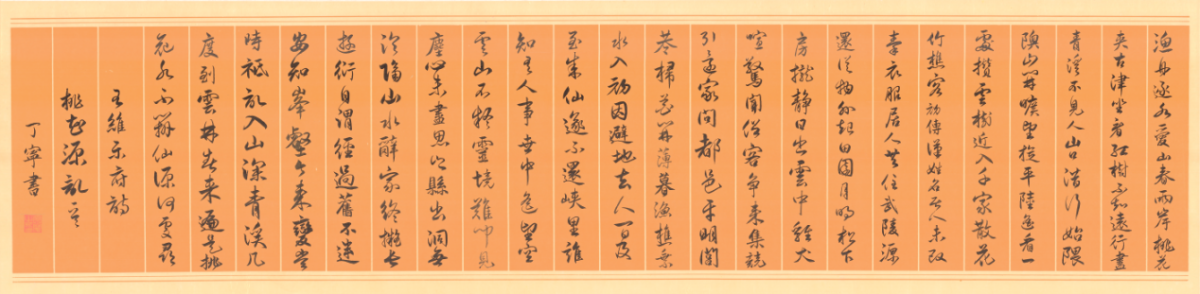 漁舟逐水愛山春兩岸桃花
夾古津坐看紅樹不知遠行盡
青溪不見人山口潛行始隈
隩山開曠望旋平陸遙看一
處攢雲樹近入千家散花
竹樵客初傳漢姓名居人未改
秦衣服居人共住武陵源
還從物外起田園月明松下
房櫳靜日出雲中雞犬
喧驚聞俗客爭來集競
引還家問都邑平明閭
巷掃花開薄暮漁樵乘
水入初因避地去人間及
至成仙遂不還峽里誰
知有人事世中遙望空
雲山不疑靈境難聞見
塵心未盡思鄉縣出洞無
論隔山水辭家終擬長
遊衍自謂經過舊不迷
安知峰壑今來變當
時祗記入山深青溪幾
度到雲林春來遍是桃
花水不辨仙源何處尋
王維樂府詩
桃花源記
丁寧書